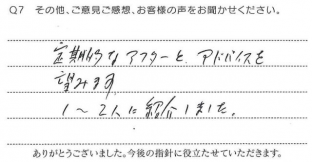 Q7 その他、ご意見ご感想、お客様の声をお聞かせください。
定期的なアフターと アドバイスを
望みます。
1～2人に紹介しました。
ありがとうございました。今後の指針に役立たせていただきます。